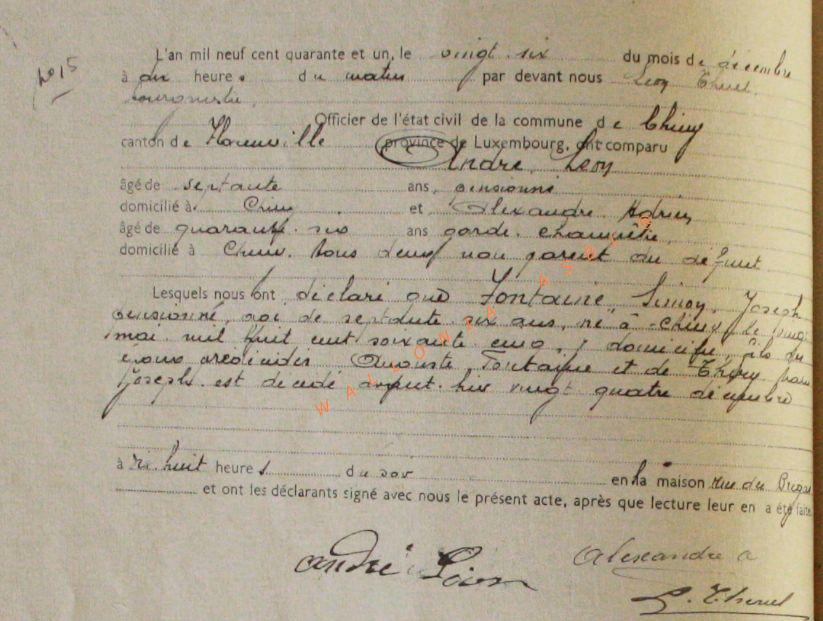 No 15
L'an mil neuf cent quarante et un, le vingt six du mois de décembre
à dix heures du matin par devant nous Léon Thiry
bourgmestre
Officier de l'état civil de la commune de Chiny
canton de Florenville province de Luxembourg, ont comparu
André Léon
âgé de septante ans, pensionné
domicilié à Chiny et Alexandre Adrien
âgé de quarante six ans garde champêtre
domicilié à Chiny. tous deux non parent du défunt
Lesquels nous ont déclaré que Fontaine, Simon, Joseph
pensionné, agé de septante six ans, né à Chiny le vingt
mai mil huit cent soixante cinq, y domicilié, fils des
époux Auguste Fontaine et de Thiry
Joseph. est decédé avant hier vingt quatre décembre
à huit heures du soir en la maison rue du
et ont les déclarants signé avec nous le présent acte, après que lecture leur en a été faite
André Léon
Alexandre a
WALLONIA ASBL